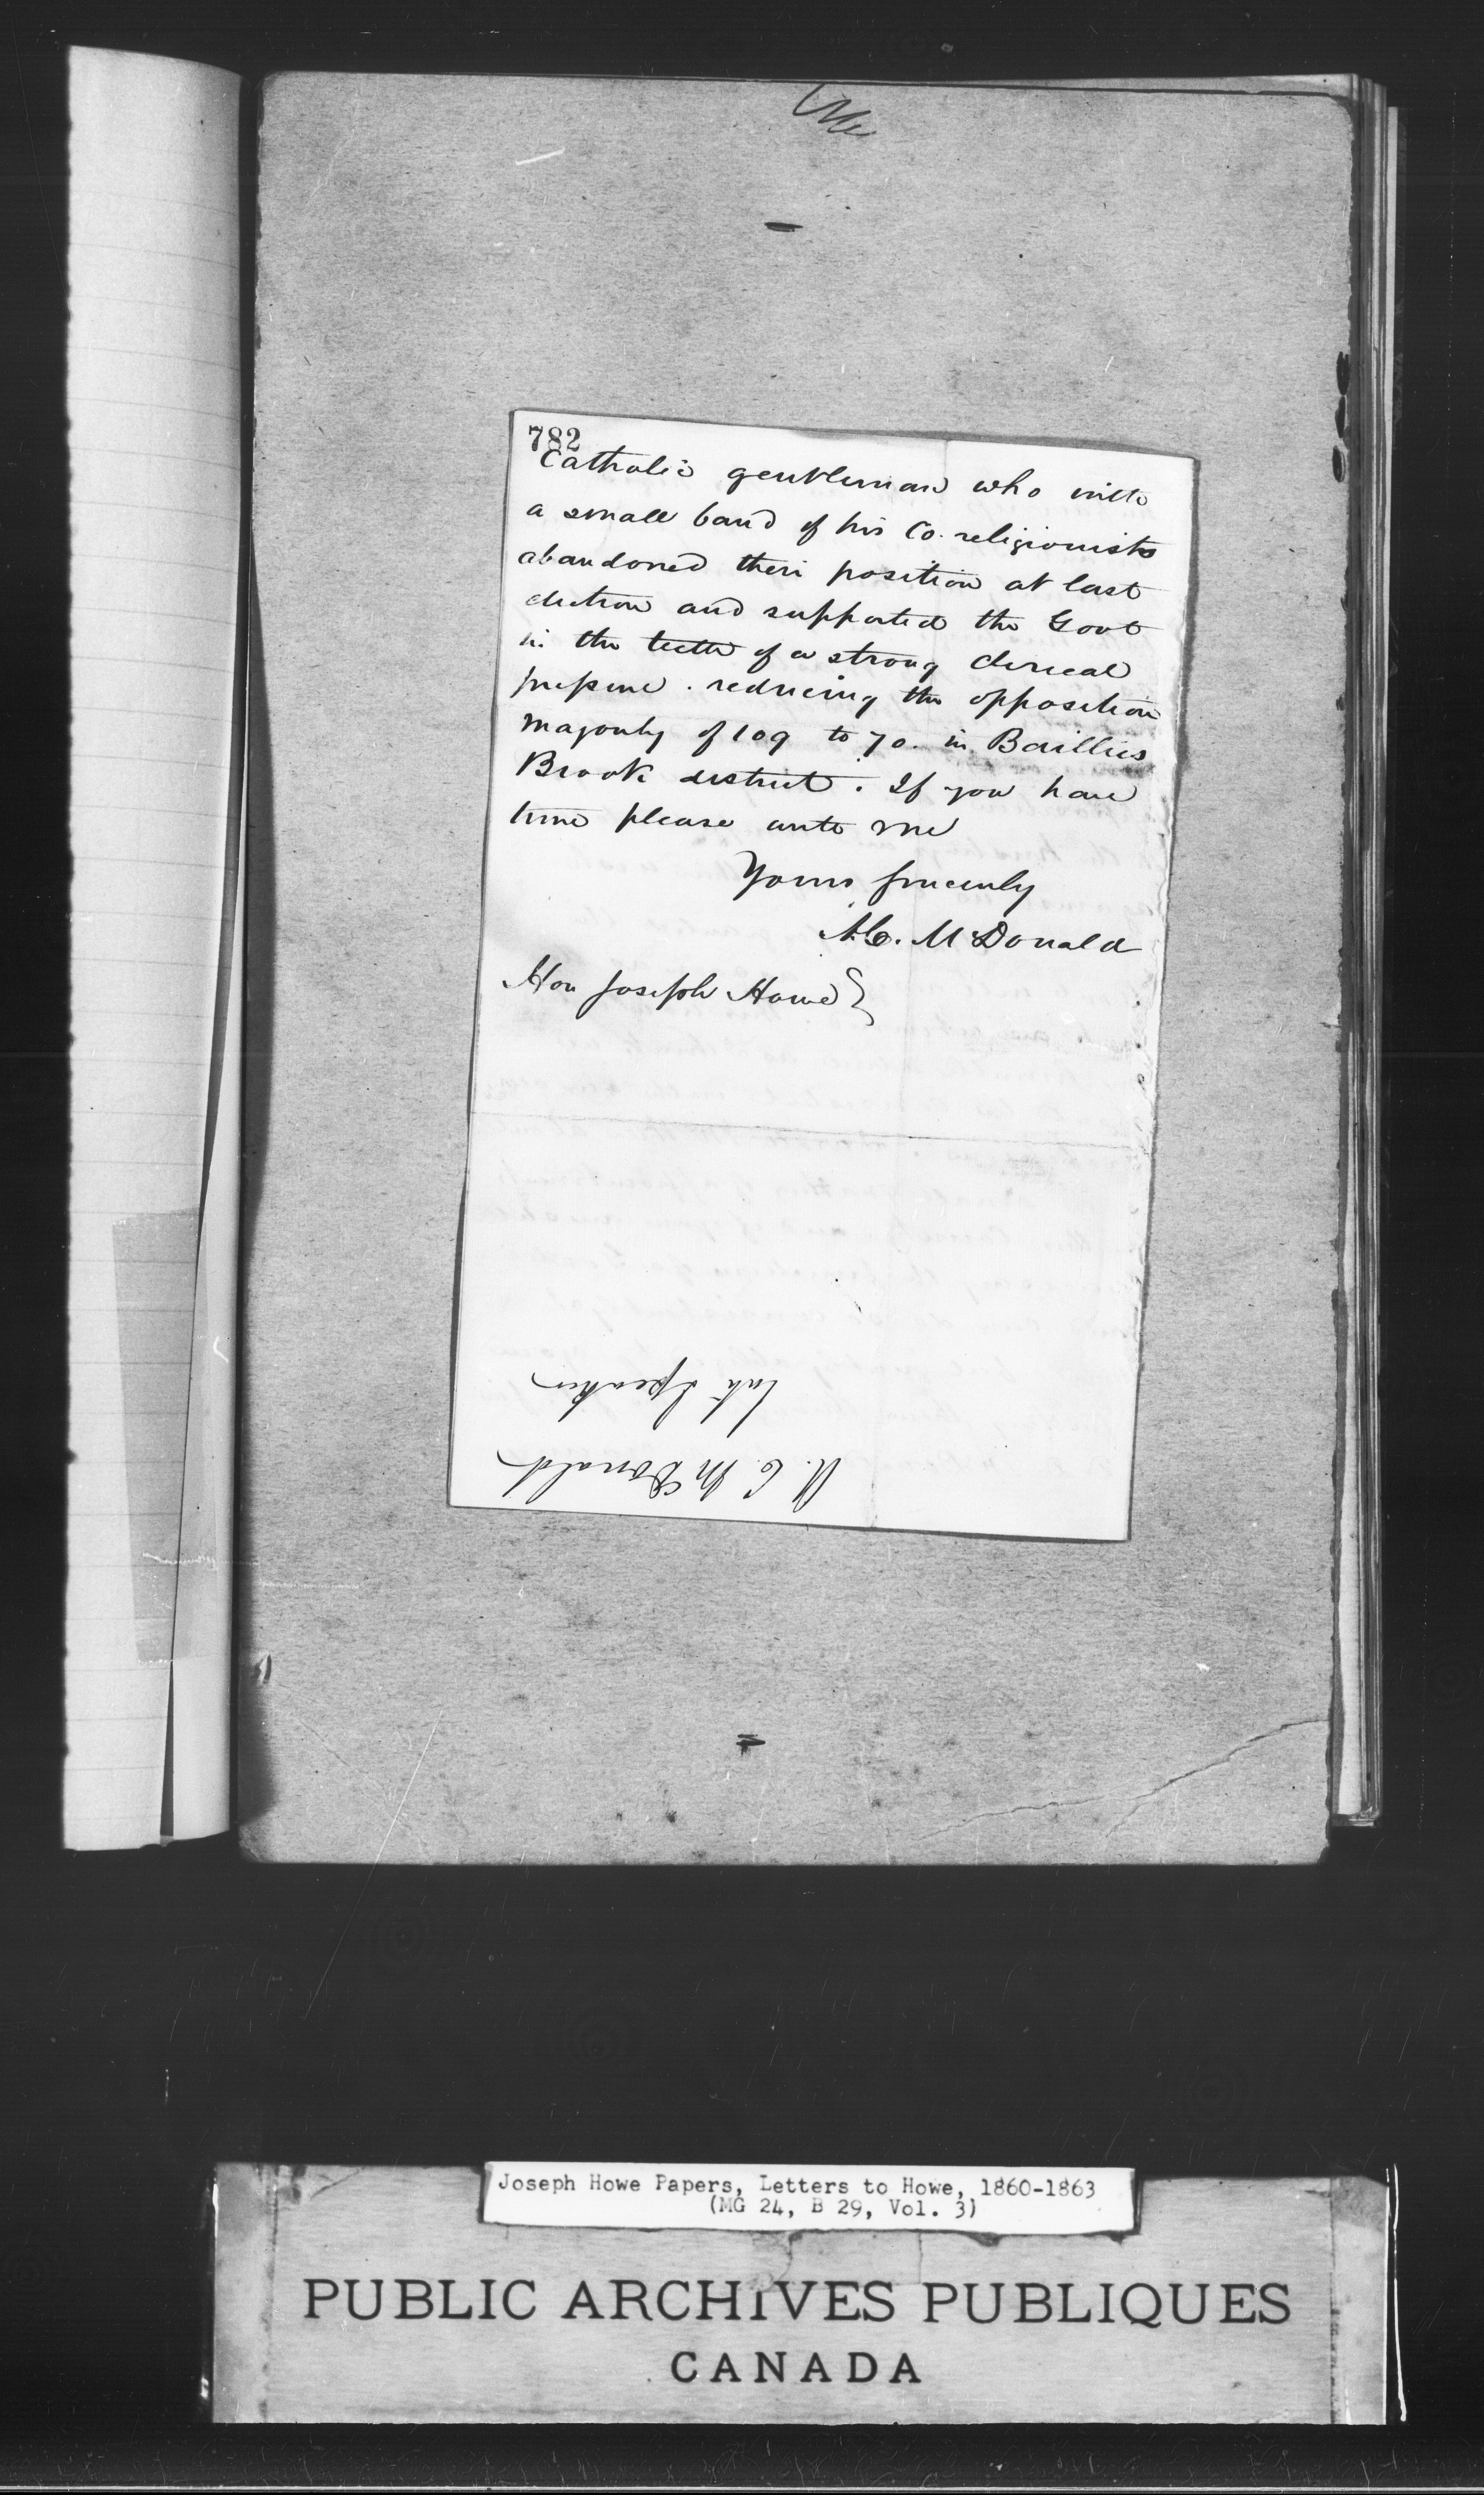 782
Catholic gentleman who with
a small band of his Co. religionists
abandoned their position at last
election and supported the Govt
in the teeth of a strong clerical
pressure. reducing the opposition
majority of 109 to 70. in Baillies
Brook district. If you have
time please write me
Yours sincerely
A.C. McDonald
Hon Joseph Howe
late Speaker
A. C. McDonald
Joseph Howe Papers, Letters to Howe, 1860-1863
(MG 24, B 29, Vol. 3)
PUBLIC ARCHIVES PUBLIQUES
CANADA